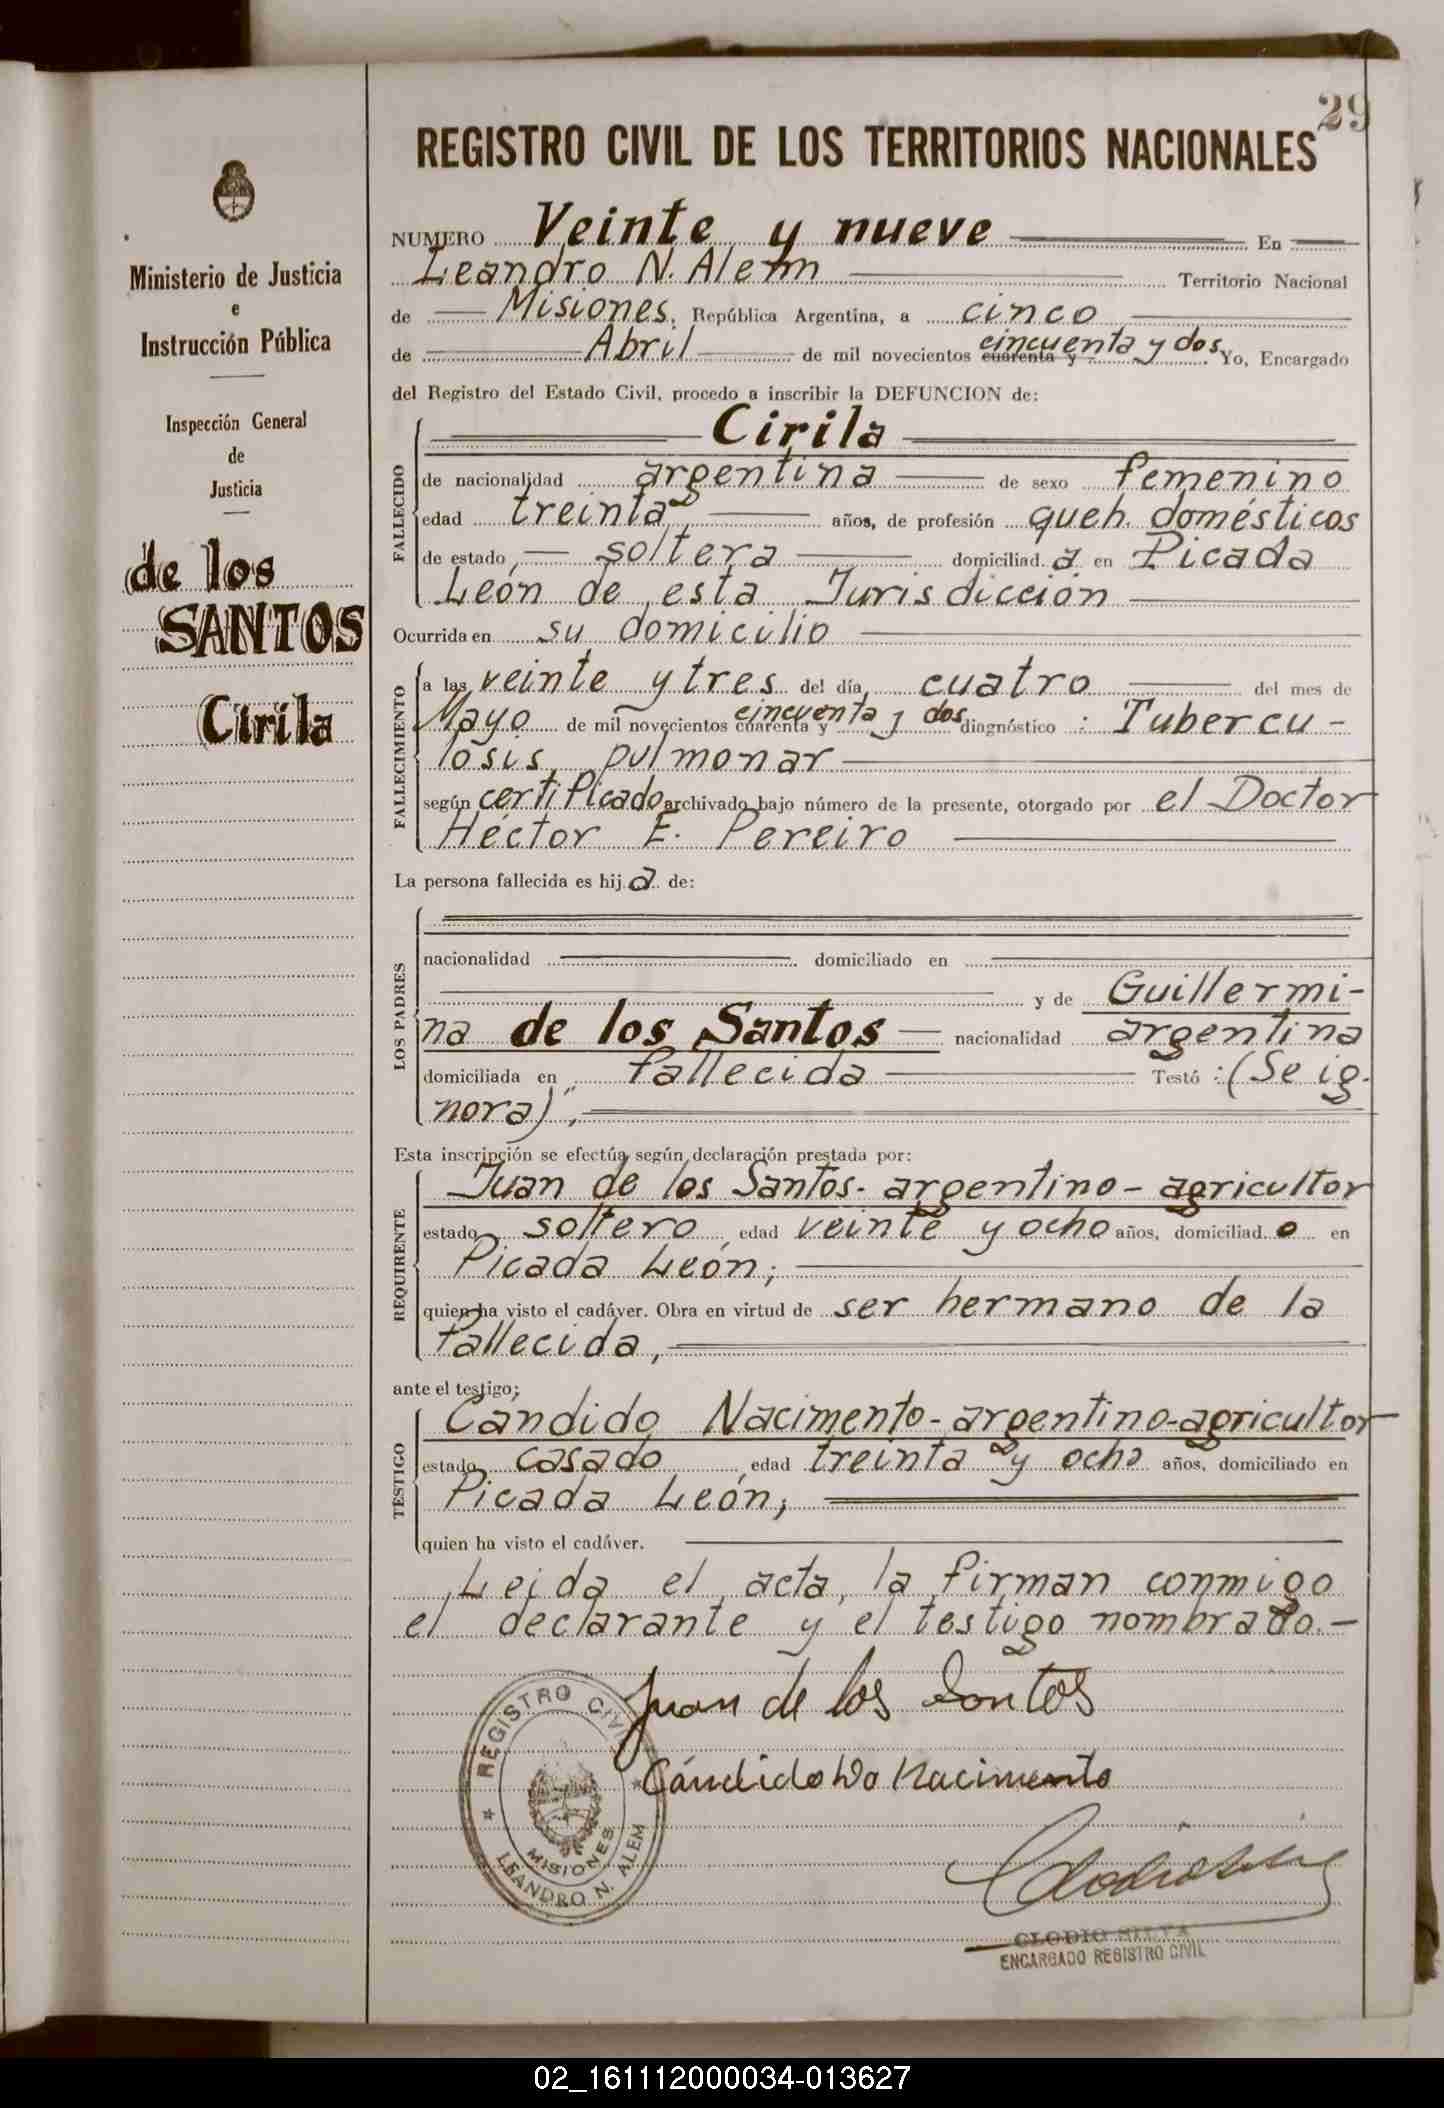 29
REGISTRO CIVIL DE LOS TERRITORIOS NACIONALES
Ministerio de Justicia
e
Instrucción Pública
Inspección General
de
Justicia
de los
SANTOS
Cirila
NUMERO Veinte y nueve En
Leandro N. Alem Territorio Nacional
de Misiones, República Argentina, a cinco
de Abril de mil novecientos cuarenta y cincuenta y dos Yo, Encargado
del Registro del Estado Civil, procedo a inscribir la DEFUNCION de:
FALLECIDO
Cirila
de nacionalidad argentina de sexo femenino
edad treinta años, de profesión queh. domésticos
de estado soltera domiciliad a en Picada
León de esta Jurisdicción
Ocurrida en su domicilio
FALLECIMIENTO
a las veinte y tres del día cuatro del mes de
Mayo de mil novecientos cuarenta y cincuenta y dos diagnóstico : Tubercu-
losis pulmonar
según certificado archivado bajo número de la presente, otorgado por el Doctor
Héctor E. Pereiro
La persona fallecida es hij a de:
LOS PADRES
nacionalidad domiciliado en
y de Guillermi-
na de los Santos nacionalidad argentina
domiciliada en fallecida Testó : (Se ig-
nora),
Esta inscripción se efectúa según declaración prestada por:
REQUIRENTE
Juan de los Santos- argentino- agricultor
estado soltero edad veinte y ocho años, domiciliad o en
Picada León;
quien ha visto el cadáver. Obra en virtud de ser hermano de la
fallecida,
ante el testigo;
TESTIGO
Cándido Nacimento- argentino- agricultor
estado casado edad treinta y ocho años, domiciliado en
Picada León;
quien ha visto el cadáver.
Leida el acta, la firman conmigo
el declarante y el testigo nombrado.-
Juan de los Santos
Cándido Do Nacimento
REGISTRO CIVIL
MISIONES
LEANDRO N. ALEM
CLODIO SILVA
ENCARGADO REGISTRO CIVIL
02_161112000034-013627